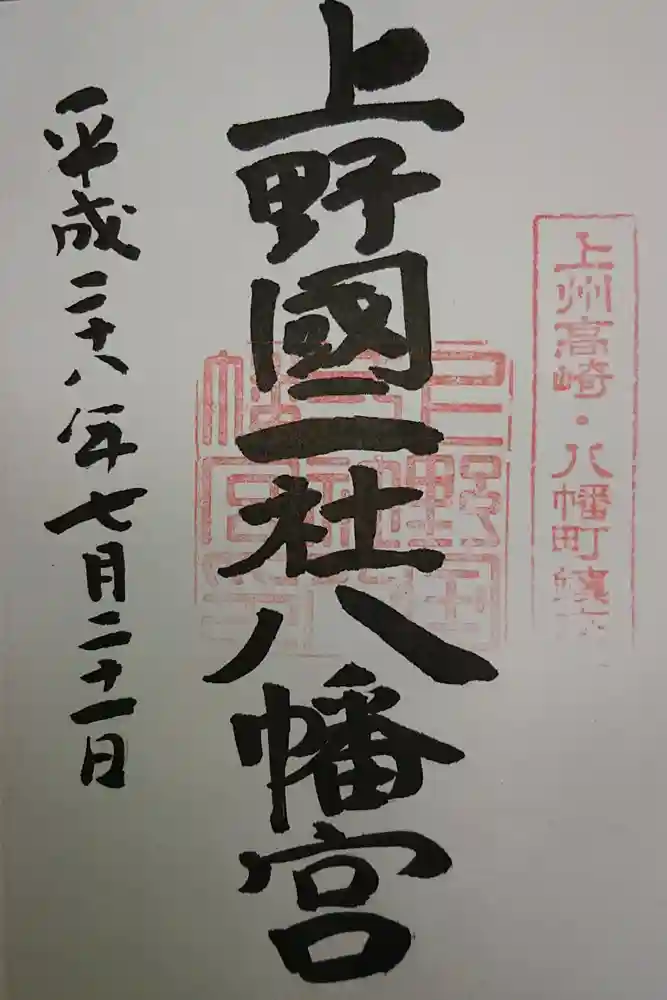 上州高崎・八幡町鎮座
上野國一社八幡宮
上野國
平成二十八年七月二十一日